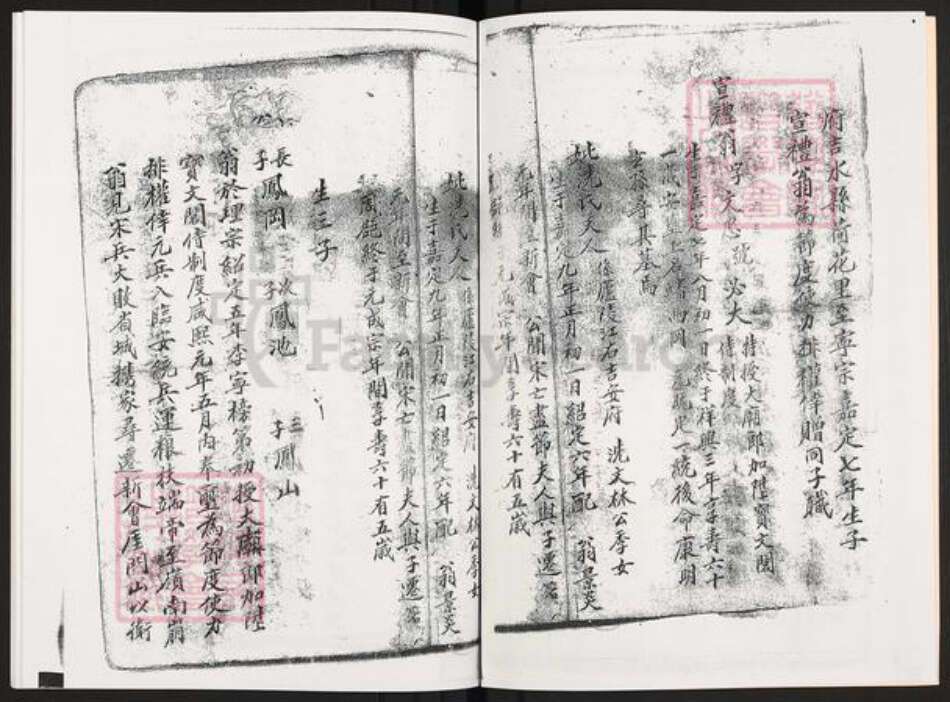 府吉水縣荷花里至寧宗嘉定七年生子
宣禮翁為節度使力排權倖贈同子職
宣禮翁 字天 號必大 特授大廟郎加陞寶文閣待制度
生于嘉定七年八月初一日終于祥興三年享壽六十
一歲
妣冼氏夫人 係廬陵江右吉安府 冼文林公季女
生于嘉定九年正月初一日紹定六年配 翁景炎
元年間至新會 公聞宋亡盡節夫人與子遷
元成宗年間享壽六十有五歲
妣冼氏夫人 係廬陵江右吉安府 冼文林公季女
生于嘉定九年正月初一日紹定六年配 翁景炎
元年間至新會 公聞宋亡盡節夫人與子遷
終于元成宗年間享壽六十有五歲
生三子
長子鳳岡 次子鳳池 三子鳳山
翁於理宗紹定五年李 榜第 授大廟郎加陞
寶文閣待制度咸熙元年五月內奉 為節度使力
排權倖元兵入臨安統兵運糧扶端帝至嶺南崩
翁見宋兵大敗省城攜家尋遷新會崖門山以衛
FamilySearch